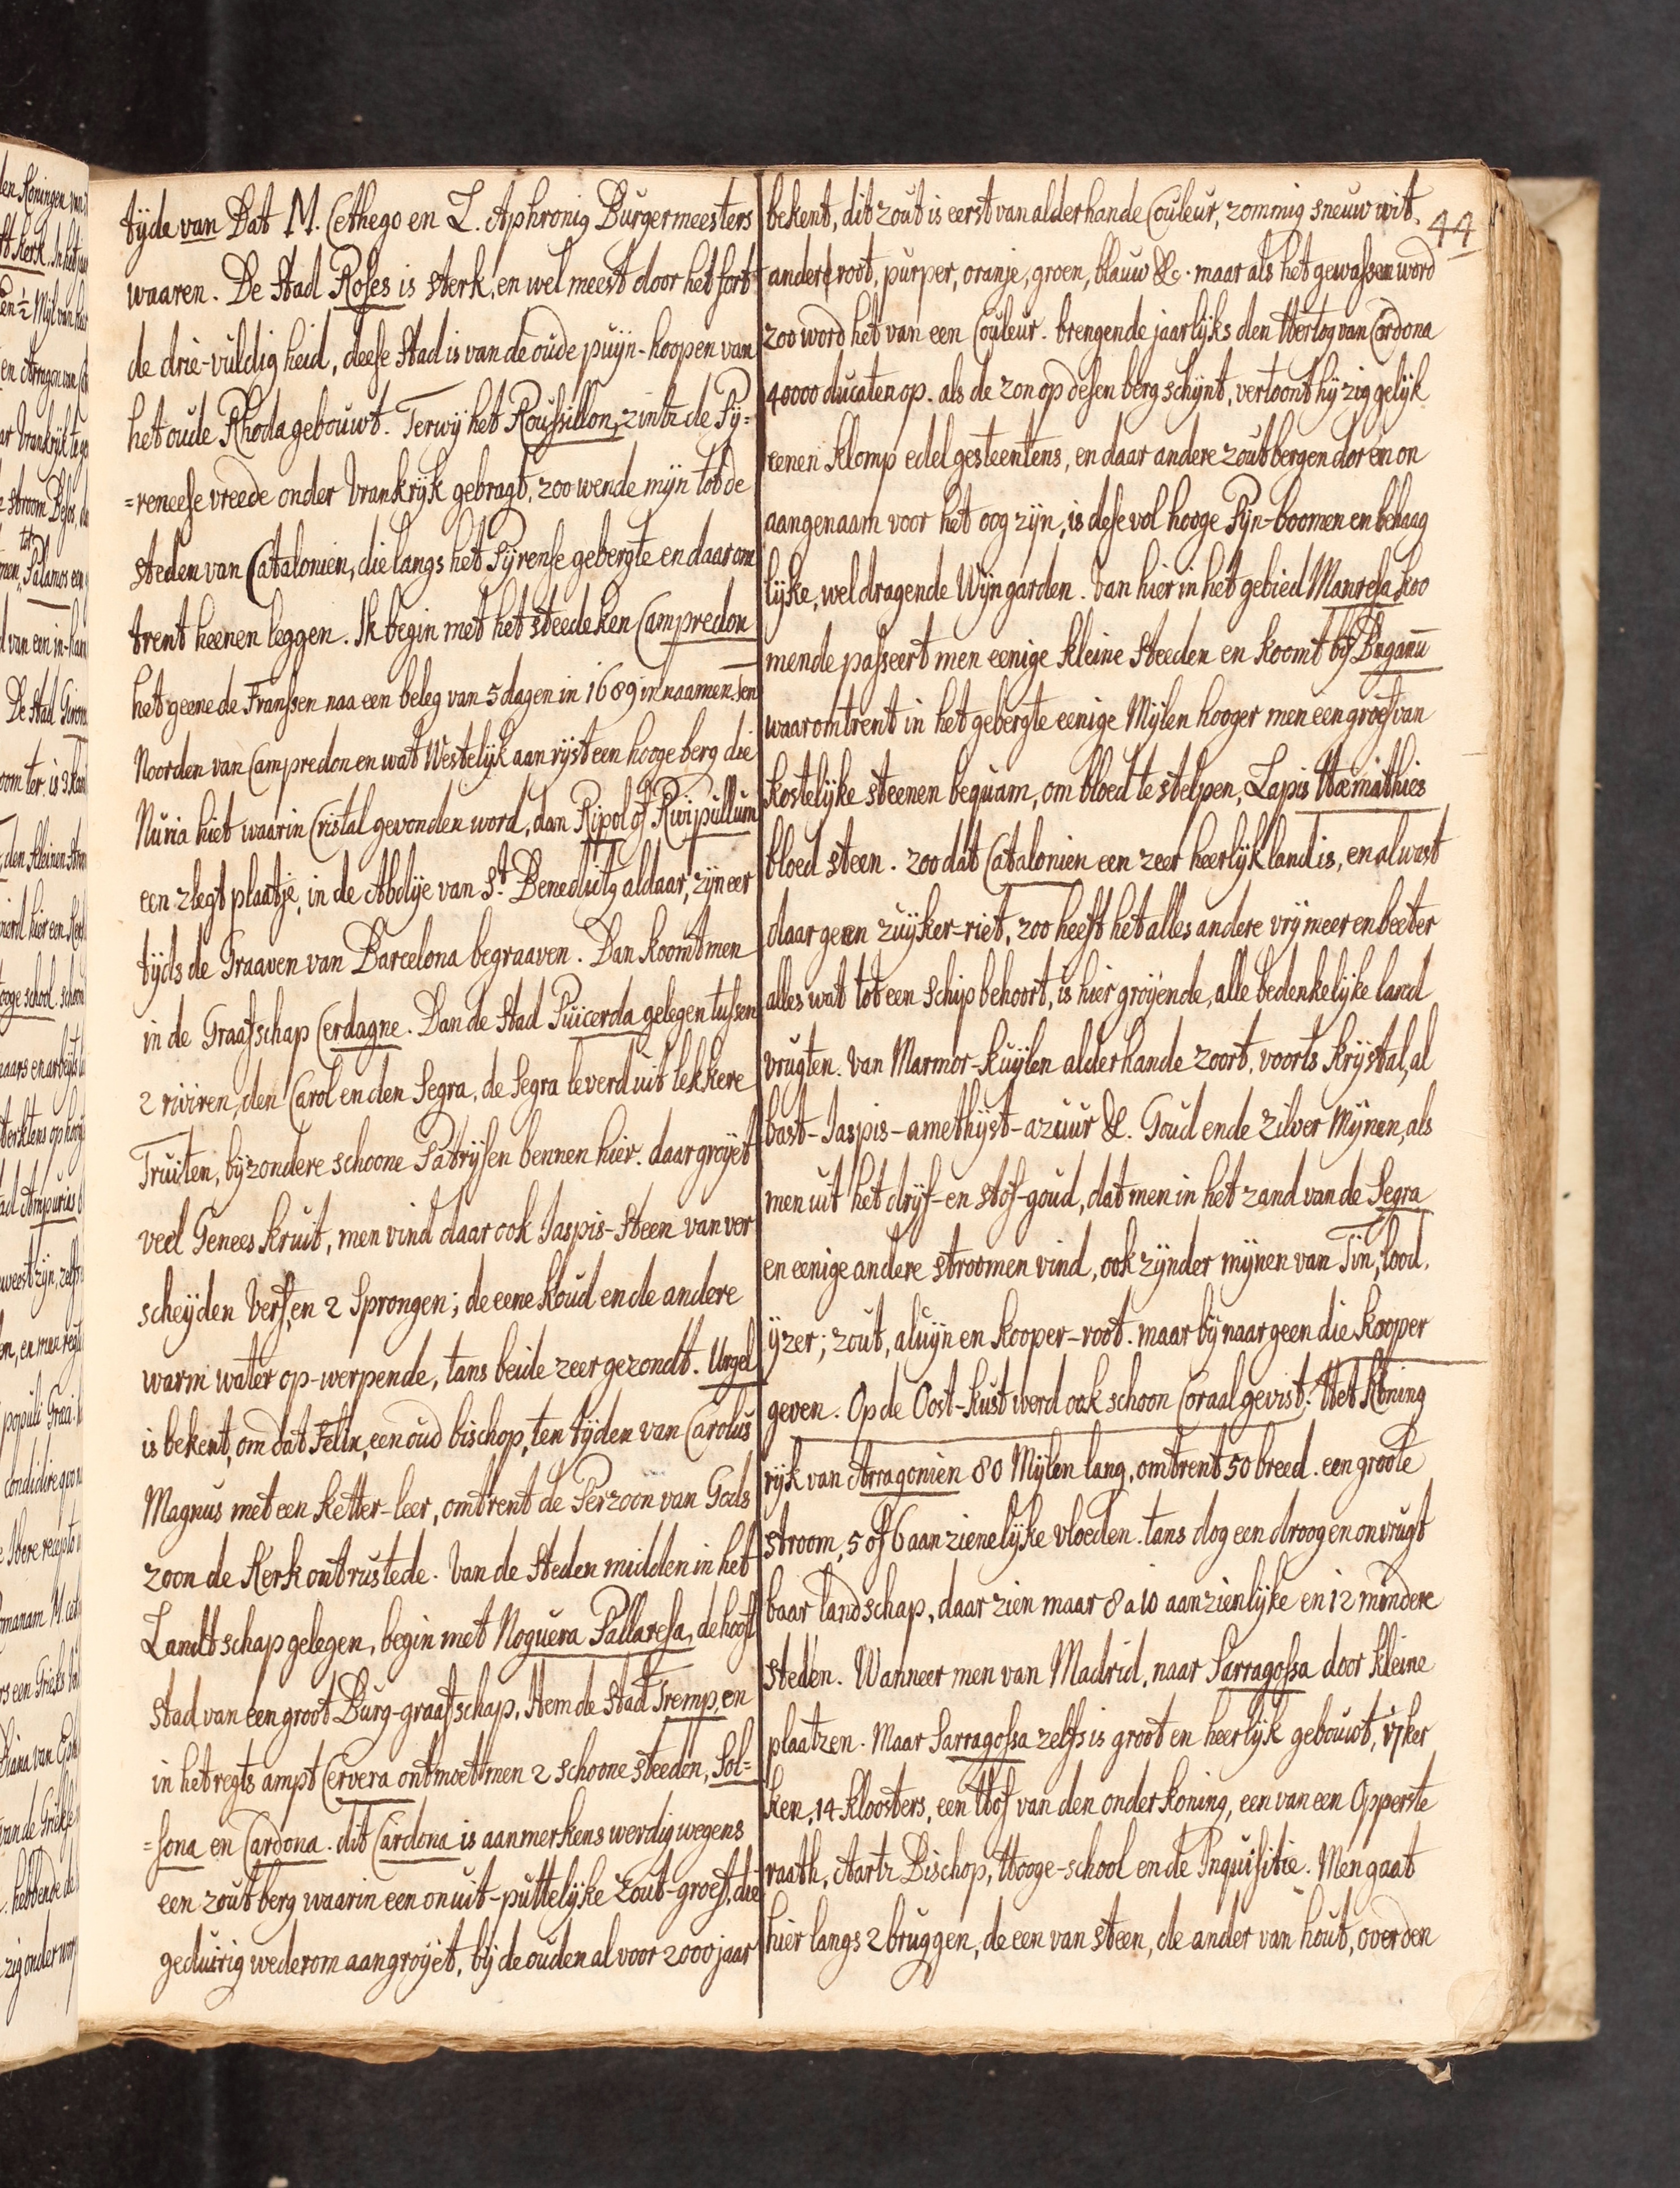 tijde van Dat M. Cethego en L. Aphronig Burgermeesters
waaren. De Stad Roses is sterk, en wel meest door het fort
de drie-vuldig heid, deese Stad is van de oude puijn-hoopen van
het oude Rhoda gebouwt. Terwij het Roussillon, zintz de Pij=
=reneese vreede onder Vrankrijk gebragt, zoo wende mijn tot de
steden van Catalonien, die langs het Pijrense gebergte en daar om
trent heenen leggen. Ik begin met het steedeken Campredon
het geene de Franssen naa een beleg van 5 dagen in 1689 in naamen. Ten
Noorden van Campredon en wat Westelijk aan rijst een hooge berg die
Nuria hiet waarin Cristal gevonden word, dan Ripol of Rivipullum
een zlegt plaatje, in de Abdije van St. Benedictg aldaar, zijn eer
tijds de Graaven van Barcelona begraaven. Dan koomt men
in de Graafschap Cerdagne. Dan de Stad Puicerda gelegen tussen
2 riviren, den Carol en den Segra, de Segra leverd uit lekkere
Truiten, bijzondere schoone Patrijsen bennen hier. daar groijet
veel Genees kruit, men vind daar ook Jaspis-Steen van ver
scheijden Verf, en 2 Sprongen; de eene koud en de andere
warm water op-werpende, tans beide zeer gezondt. Urgel
is bekent, om dat Felix, een oud bischop, ten tijden van Carolus
Magnus met een Ketter-leer, omtrent de Perzoon van Gods
zoon de Kerk ontrustede. Van de Steden midden in het
Landtschap gelegen, begin met Noguera Pallaresa, de hooft
stad van een groot Burg-graafschap. Item de Stad Tremp, en
in het regts ampt Cervera ontmoet men 2 schoone steeden, Sol=
=sona en Cardona. dit Cardona is aanmerkens werdig wegens
een zout berg waarin een onuit-puttelijke Zout-groest, die
geduirig wederom aangroijet, bij de ouden al voor 2000 jaar
44
bekent, dit zout is eerst van alderhande Couleur, zommig sneuw wit
andere root, purper, oranje, groen, blauw &c. maar als het gewassen word
zoo word het van een Couleur. brengende jaarlijks den Hertog van Cordona
40000 ducaten op. als de zon op desen berg schijnt, vertoont hij zig gelijk
eenen klomp edel gesteentens, en daar andere zout bergen dor en on
aangenaam voor het oog zijn, is dese vol hooge Pijn-boomen en behaag
lijke, wel dragende Wijngarden. Van hier in het gebied Manresa koo
mende passeert men eenige kleine Steeden en koomt bij Bnganu
waar omtrent in het gebergte eenige Mijlen hooger men een groef van
kostelijke steenen bequam, om bloed te stelpen, Lapis Hæmathies
bloed steen. zoo dat Catalonien een zeer heerlijk land is, en al wast
daar geen zuijker-riet, zoo heeft het alles andere vrij meer en beeter
alles wat tot een Schip behoort, is hier groijende, alle bedenkelijke land
vrugten. Van Marmor-kuijlen alderhande zoort, voorts Krijstal, al
bast-Jaspis-amethijst-azuur &c. Goud ende Zilver Mijnen, als
men uit het drijf-en stof-goud, dat men in het zand van de Segra
en eenige andere stroomen vind, ook zijnder mijnen van Tin, lood,
ijzer; zout, aluijn en kooper-root. maar bij naar geen die kooper
geven. Op de Oost-kust werd ook schoon Coraal gevist. Het Koning
rijk van Arragonien 80 Mijlen lang, omtrent 50 breed. een groote
stroom, 5 of 6 aan zienelijke vloeden. tans dog een droog en onvrugt
baar landschap, daar zien maar 8 a 10 aanzienlijke en 12 mindere
steden. Wanneer men van Madrid, naar Sarragossa door kleine
plaatzen. Maar Sarragossa zelfs is groot en heerlijk gebouwt, 17 ker
ken, 14 kloosters, een Hof van den onder koning, een van een Opperste
raath, Aartz Bischop, Hooge-school en de Inquisitie. Men gaat
hier langs 2 bruggen, de een van steen, de ander van hout, over den